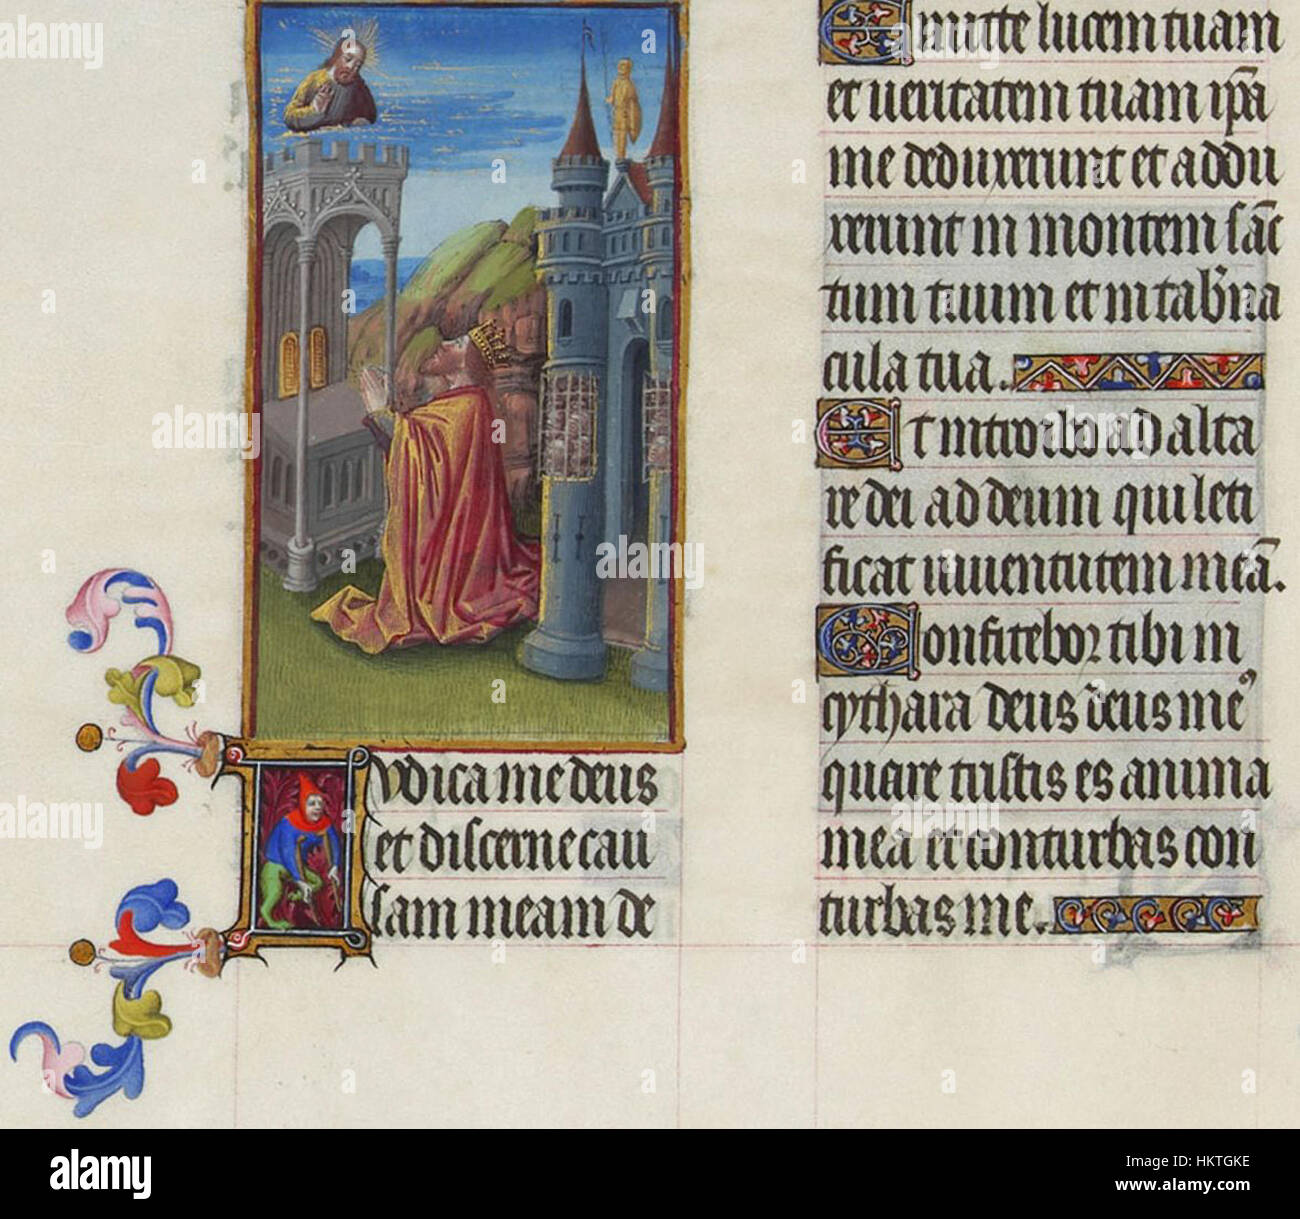 Iudica me deus
et discerne cau
sam meam de
Emitte lucem tuam
et ueritatem tuam ip̃a
me deduxerunt et addu
xerunt in montem sãc
tum tuum et in tab'na
cula tua.
Et introibo ad alta
re dei ad deum qui leti
ficat iuuentutem meã.
Confitebor tibi in
cythara deus d̃eus meꝰ
quare tristis es anima
mea et conturbas con
turbas me.
a alamy stock photo
alamy
Image ID: HKTGKE
www.alamy.com